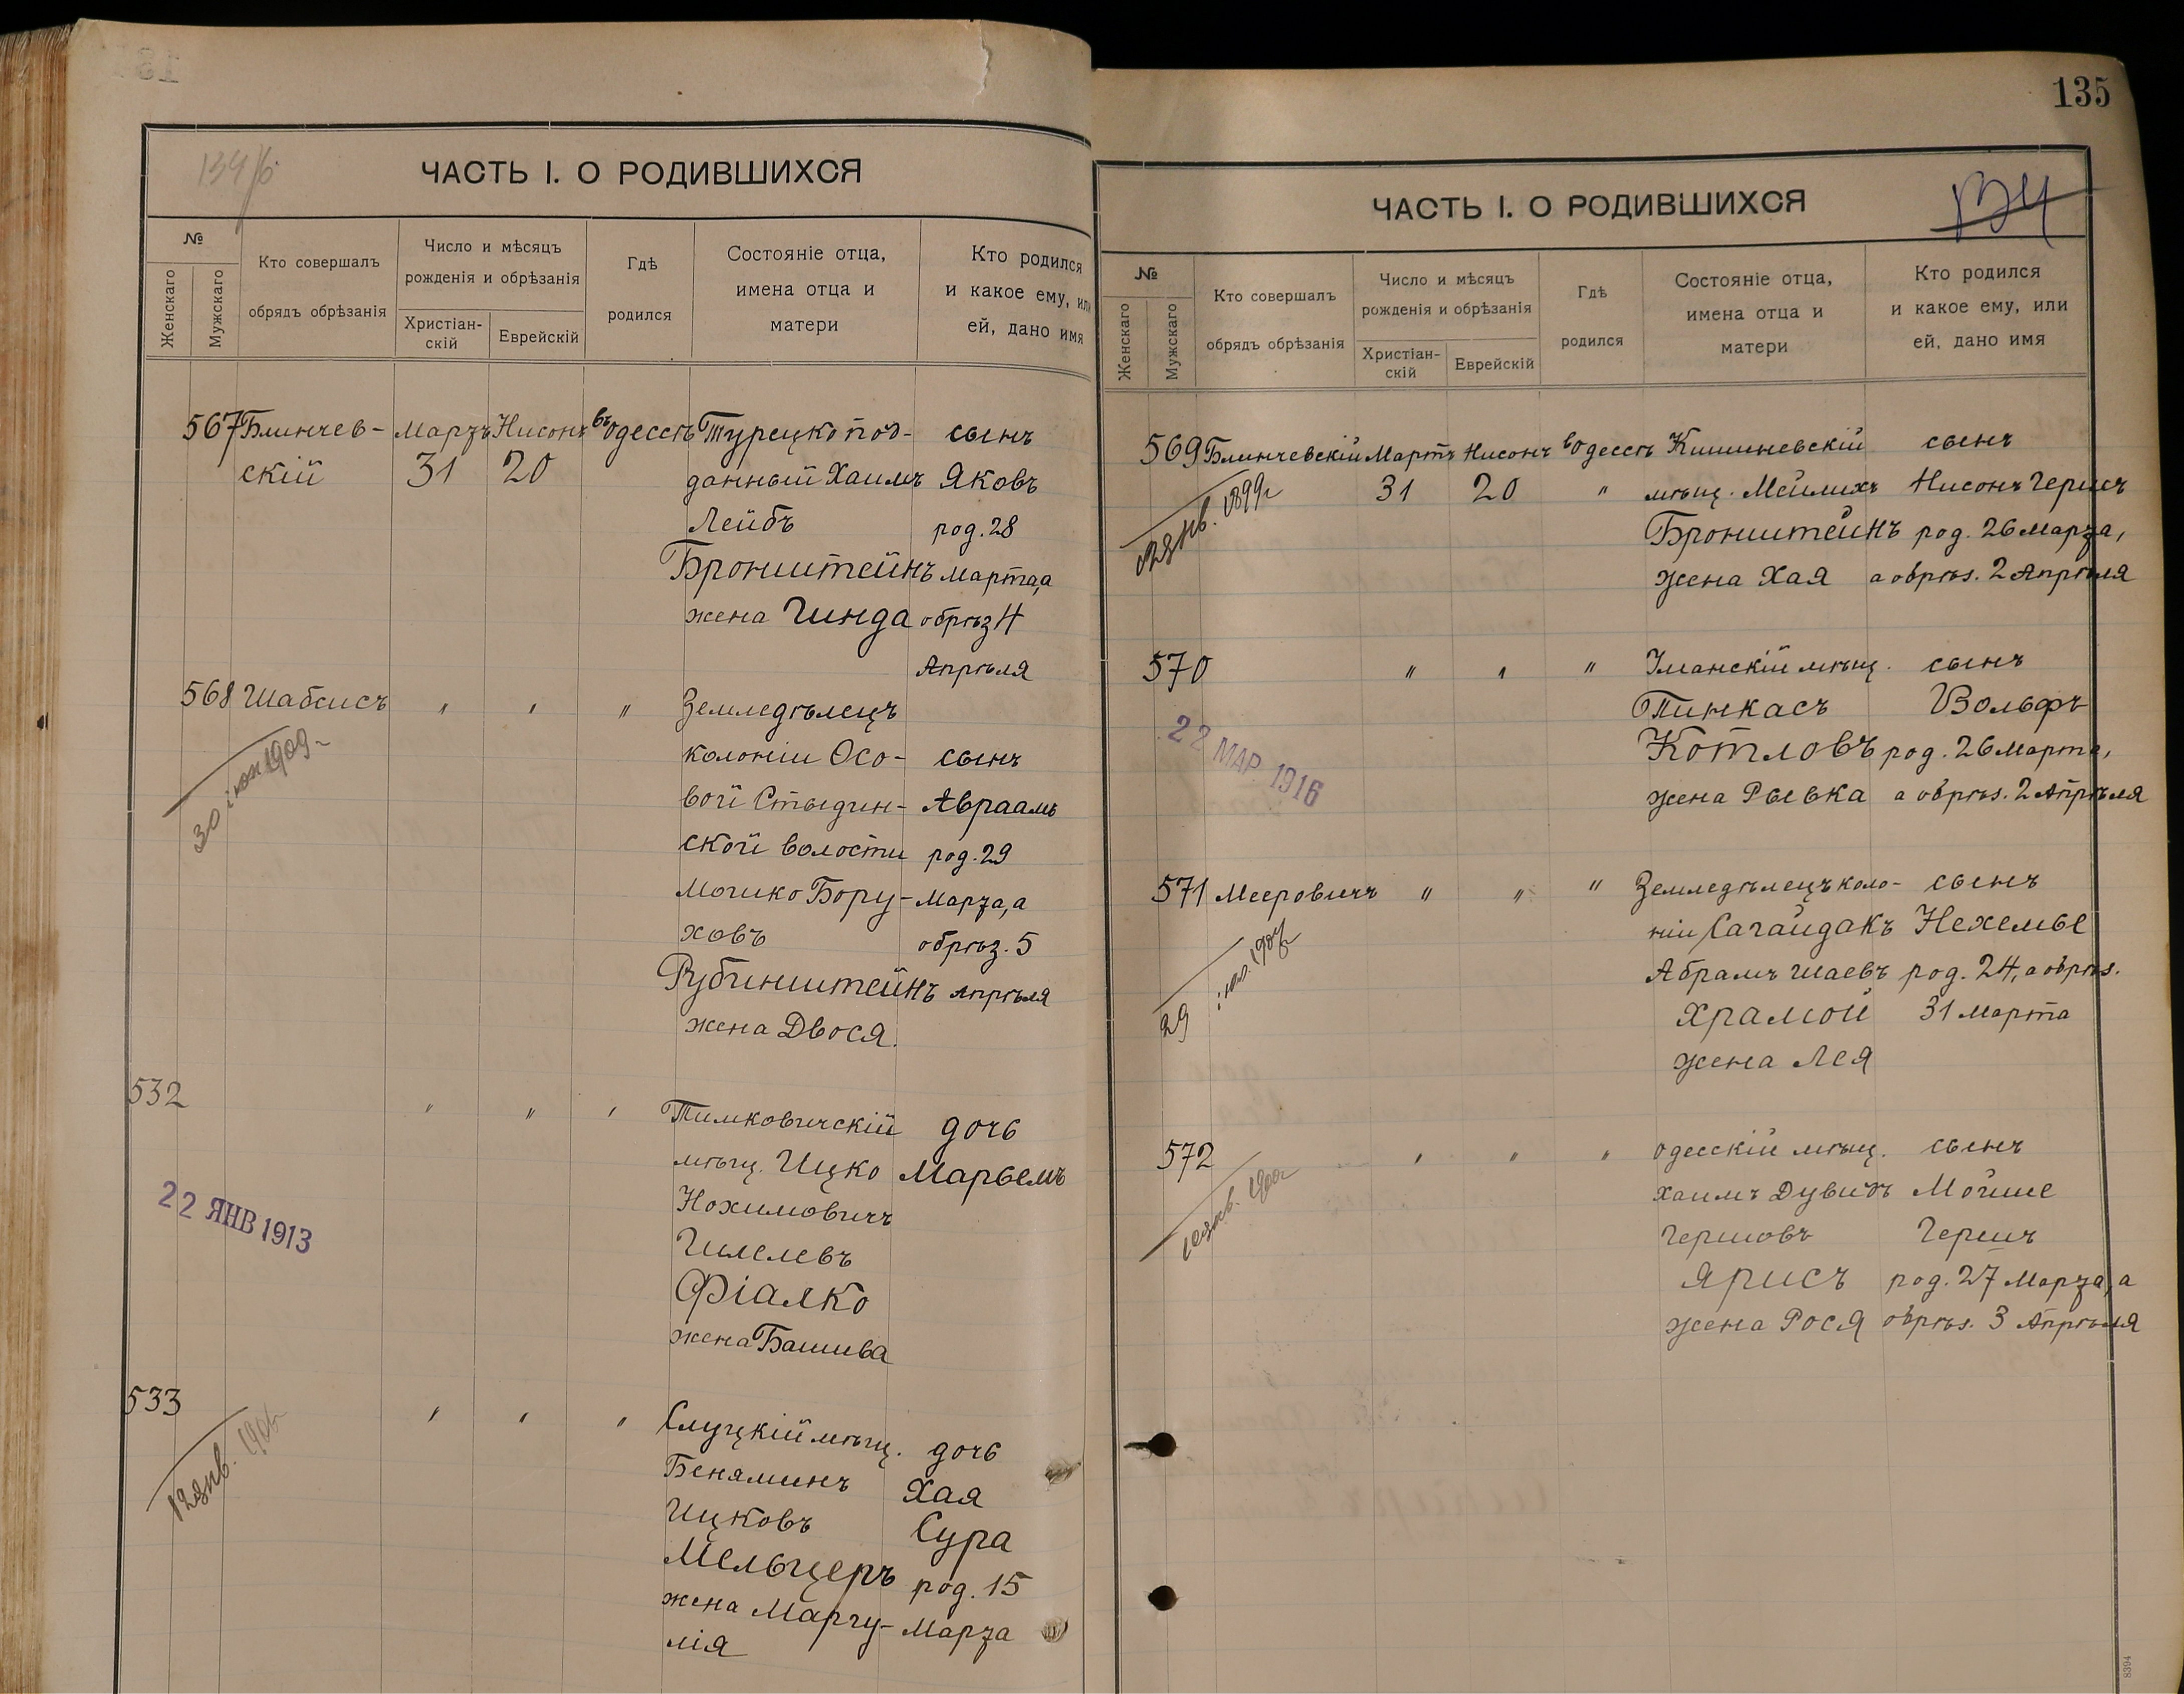 134/б
ЧАСТЬ I. О РОДИВШИХСЯ
№
Женскаго
Мужскаго
Кто совершалъ
обрядъ обрѣзанія
Число и мѣсяцъ
рожденія и обрѣзанія
Христіан-
скій
Еврейскій
Гдѣ
родился
Состояніе отца,
имена отца и
матери
Кто родился
и какое ему, или
ей, дано имя
567 Блинчев- Мартъ Нисонъ въ Одессѣ Турецко под- сынъ
скій 31 20 данный Хаимъ Яковъ
Лейбъ род. 28
Бронштейнъ марта, а
жена Гинда обрѣз 4
Апрѣля
568 Шабсисъ " " " Земледѣлецъ
колоніи Осо- сынъ
вой Стыдин- Авраамъ
ской волости род. 29
Мошко Бору- Марта, а
ховъ обрѣз. 5
Рубинштейнъ Апрѣля
жена Двося.
30 іюн 1909 г
532 " " " Тимковичскій дочь
мѣщ. Ицко Марьемъ
Нохимовичъ
Гилелевъ
Фіалко
жена Башива
22 ЯНВ 1913
533 " " " Слуцкій мѣщ. дочь
Беняминъ Хая
Ицковъ Сура
Мельцеръ род. 15
жена Маргу- Марта
лія
12 янв. 1906 г
135
ЧАСТЬ I. О РОДИВШИХСЯ
134
№
Женскаго
Мужскаго
Кто совершалъ
обрядъ обрѣзанія
Число и мѣсяцъ
рожденія и обрѣзанія
Христіан-
скій
Еврейскій
Гдѣ
родился
Состояніе отца,
имена отца и
матери
Кто родился
и какое ему, или
ей, дано имя
569 Блинчевскій Мартъ Нисонъ въ Одессѣ Кишиневскій сынъ
31 20 " мѣщ. Мейлихъ Нисонъ Гершъ
Бронштейнъ род. 26 Марта,
жена Хая а обрѣз. 2 Апрѣля
янв. 1899 г
570 " " " Уманскій мѣщ. сынъ
Пинкасъ Вольфъ
Котловъ род. 26 Марта,
жена Рывка а обрѣз. 2 Апрѣля
22 МАР. 1916
571 Мееровичъ " " " Земледѣлецъ коло- сынъ
ніи Сагайдакъ Нехемье
Абрамъ Шаевъ род. 24, а обрѣз.
Храмой 31 Марта
жена Лея
29 іюл. 1907 г
572 " " " Одесскій мѣщ. сынъ
Хаимъ Дувидъ Мойше
Гершовъ Гершъ
Ярисъ род. 27 Марта, а
жена Рося обрѣз. 3 Апрѣля
янв. 1900 г
8394